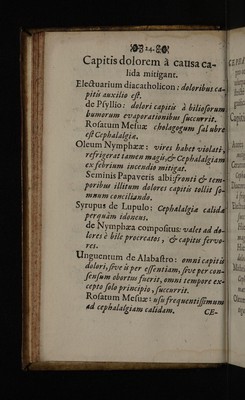 24.
Capitis dolorem à causa ca-
lida mitigant.
Electuarium diacatholicon: doloribus ca-
pitis auxilio est.
de Psyllio: dolori capitis à biliosorum
humorum evaporationibus succurrit.
Rosatum Mesuæ cholagogum salubre
est Cephalalgiæ.
Oleum Nymphææ: vires habet violati,
refrigerat tamen magis, & Cephalalgiam
ex febrium incendio mitigat.
Seminis Papaveris albi: fronti & tem-
poribus illitum dolores capitis tollit so-
mnum conciliando.
Syrupus de Lupulo: Cephalalgiæ calidæ
perquàm idoneus.
de Nymphæa compositus: valet ad do-
lores è bile procreatos, & capitis fervo-
res.
Unguentum de Alabastro: omni capitis
dolori, sive is per essentiam, sive per con-
sensum obortus fuerit, omni tempore ex-
cepto solo principio, succurrit.
Rosatum Mesuæ: usu frequentissimum
ad cephalalgiam calidam.
CE-